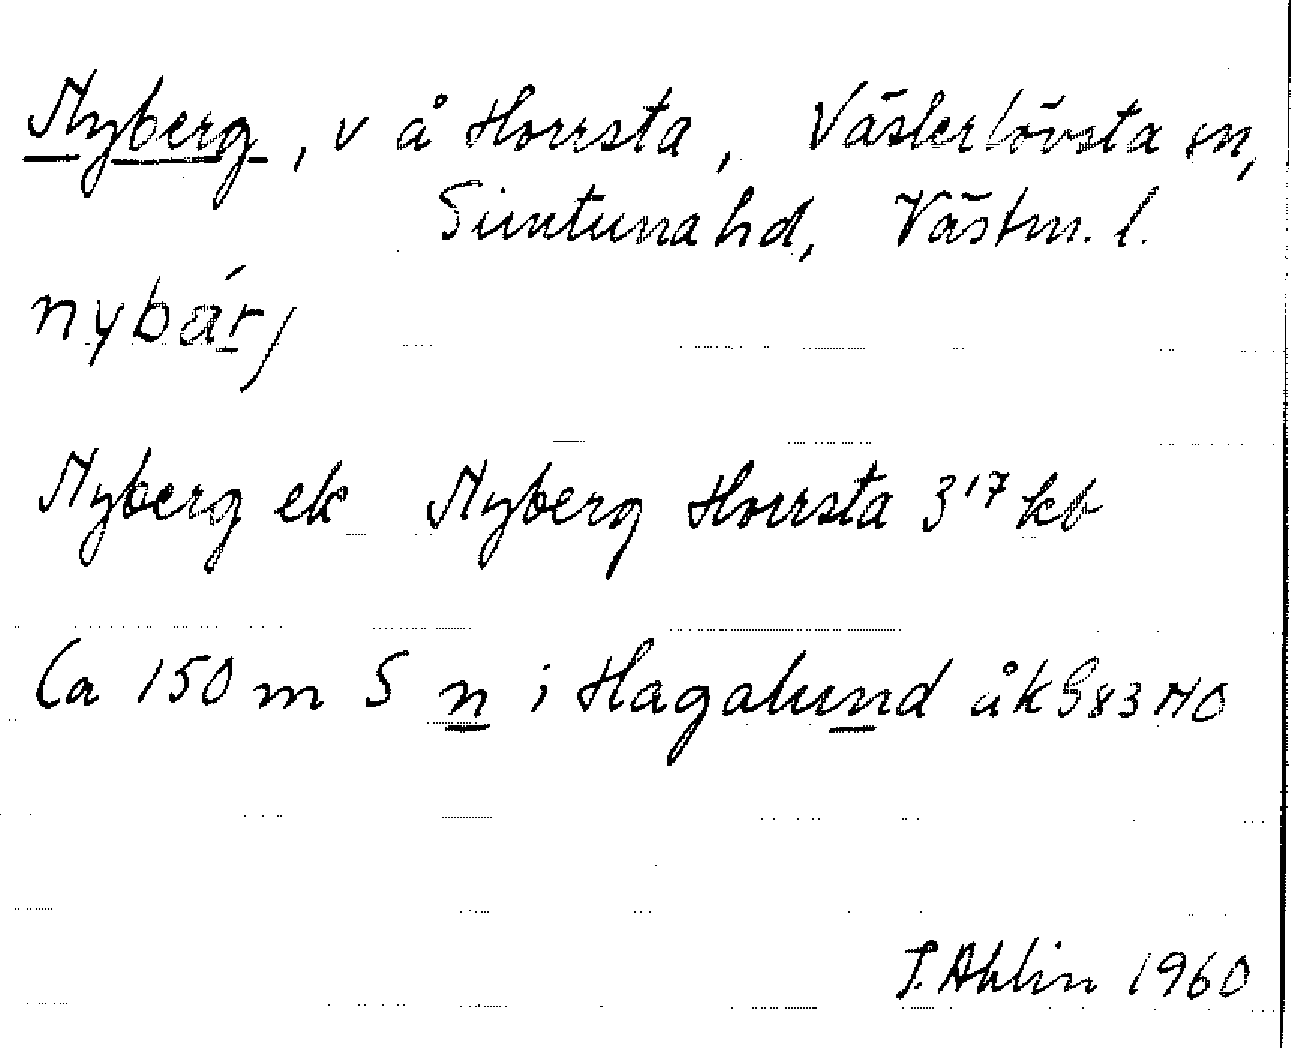 Nyberg, v å Horrsta, Västerlövsta sn,
Simtuna hd, Västm. l.
nybár̲j
Nyberg ek Nyberg Horrsta 3¹⁷ kb
Ca 150 m S n i Hagalund åk 983 NO
Ahlin 1960